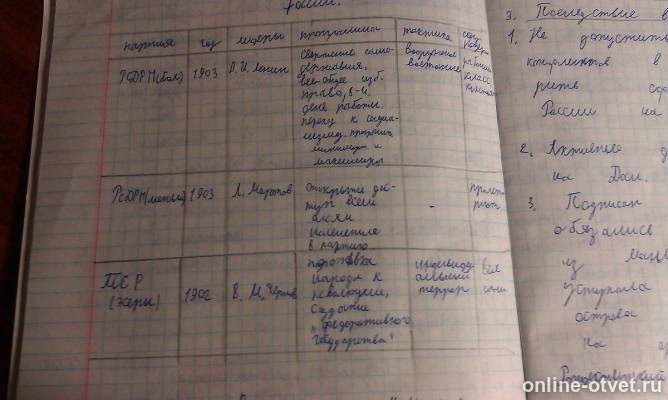 России.
партия год лидеры программа тактика соц.
РСДРП(бол) 1903 В. И. Ленин Свержение само-
державия,
всеобщее изб.
право, 8-ч.
день работы.
переход к социа-
лизму. программа
минимум и
максимум
вооруженное
восстание
рабочий
класс
РСДРП(меньш) 1903 Л. Мартов открытие дос-
тупа всем
слоям
населения
в партию
-
ПСР
(эсеры)
1902 В. М. Чернов подготовка
народа к
революции,
создание
"федеративного
государства"
индивиду-
альный
террор
все
слои
3. Последствие в
1. Не допустить
конфликтов в
России на
2. Активные д
на Дал.
3. Подписан
обязались
из
уступала
острова
на
online-otvet.ru